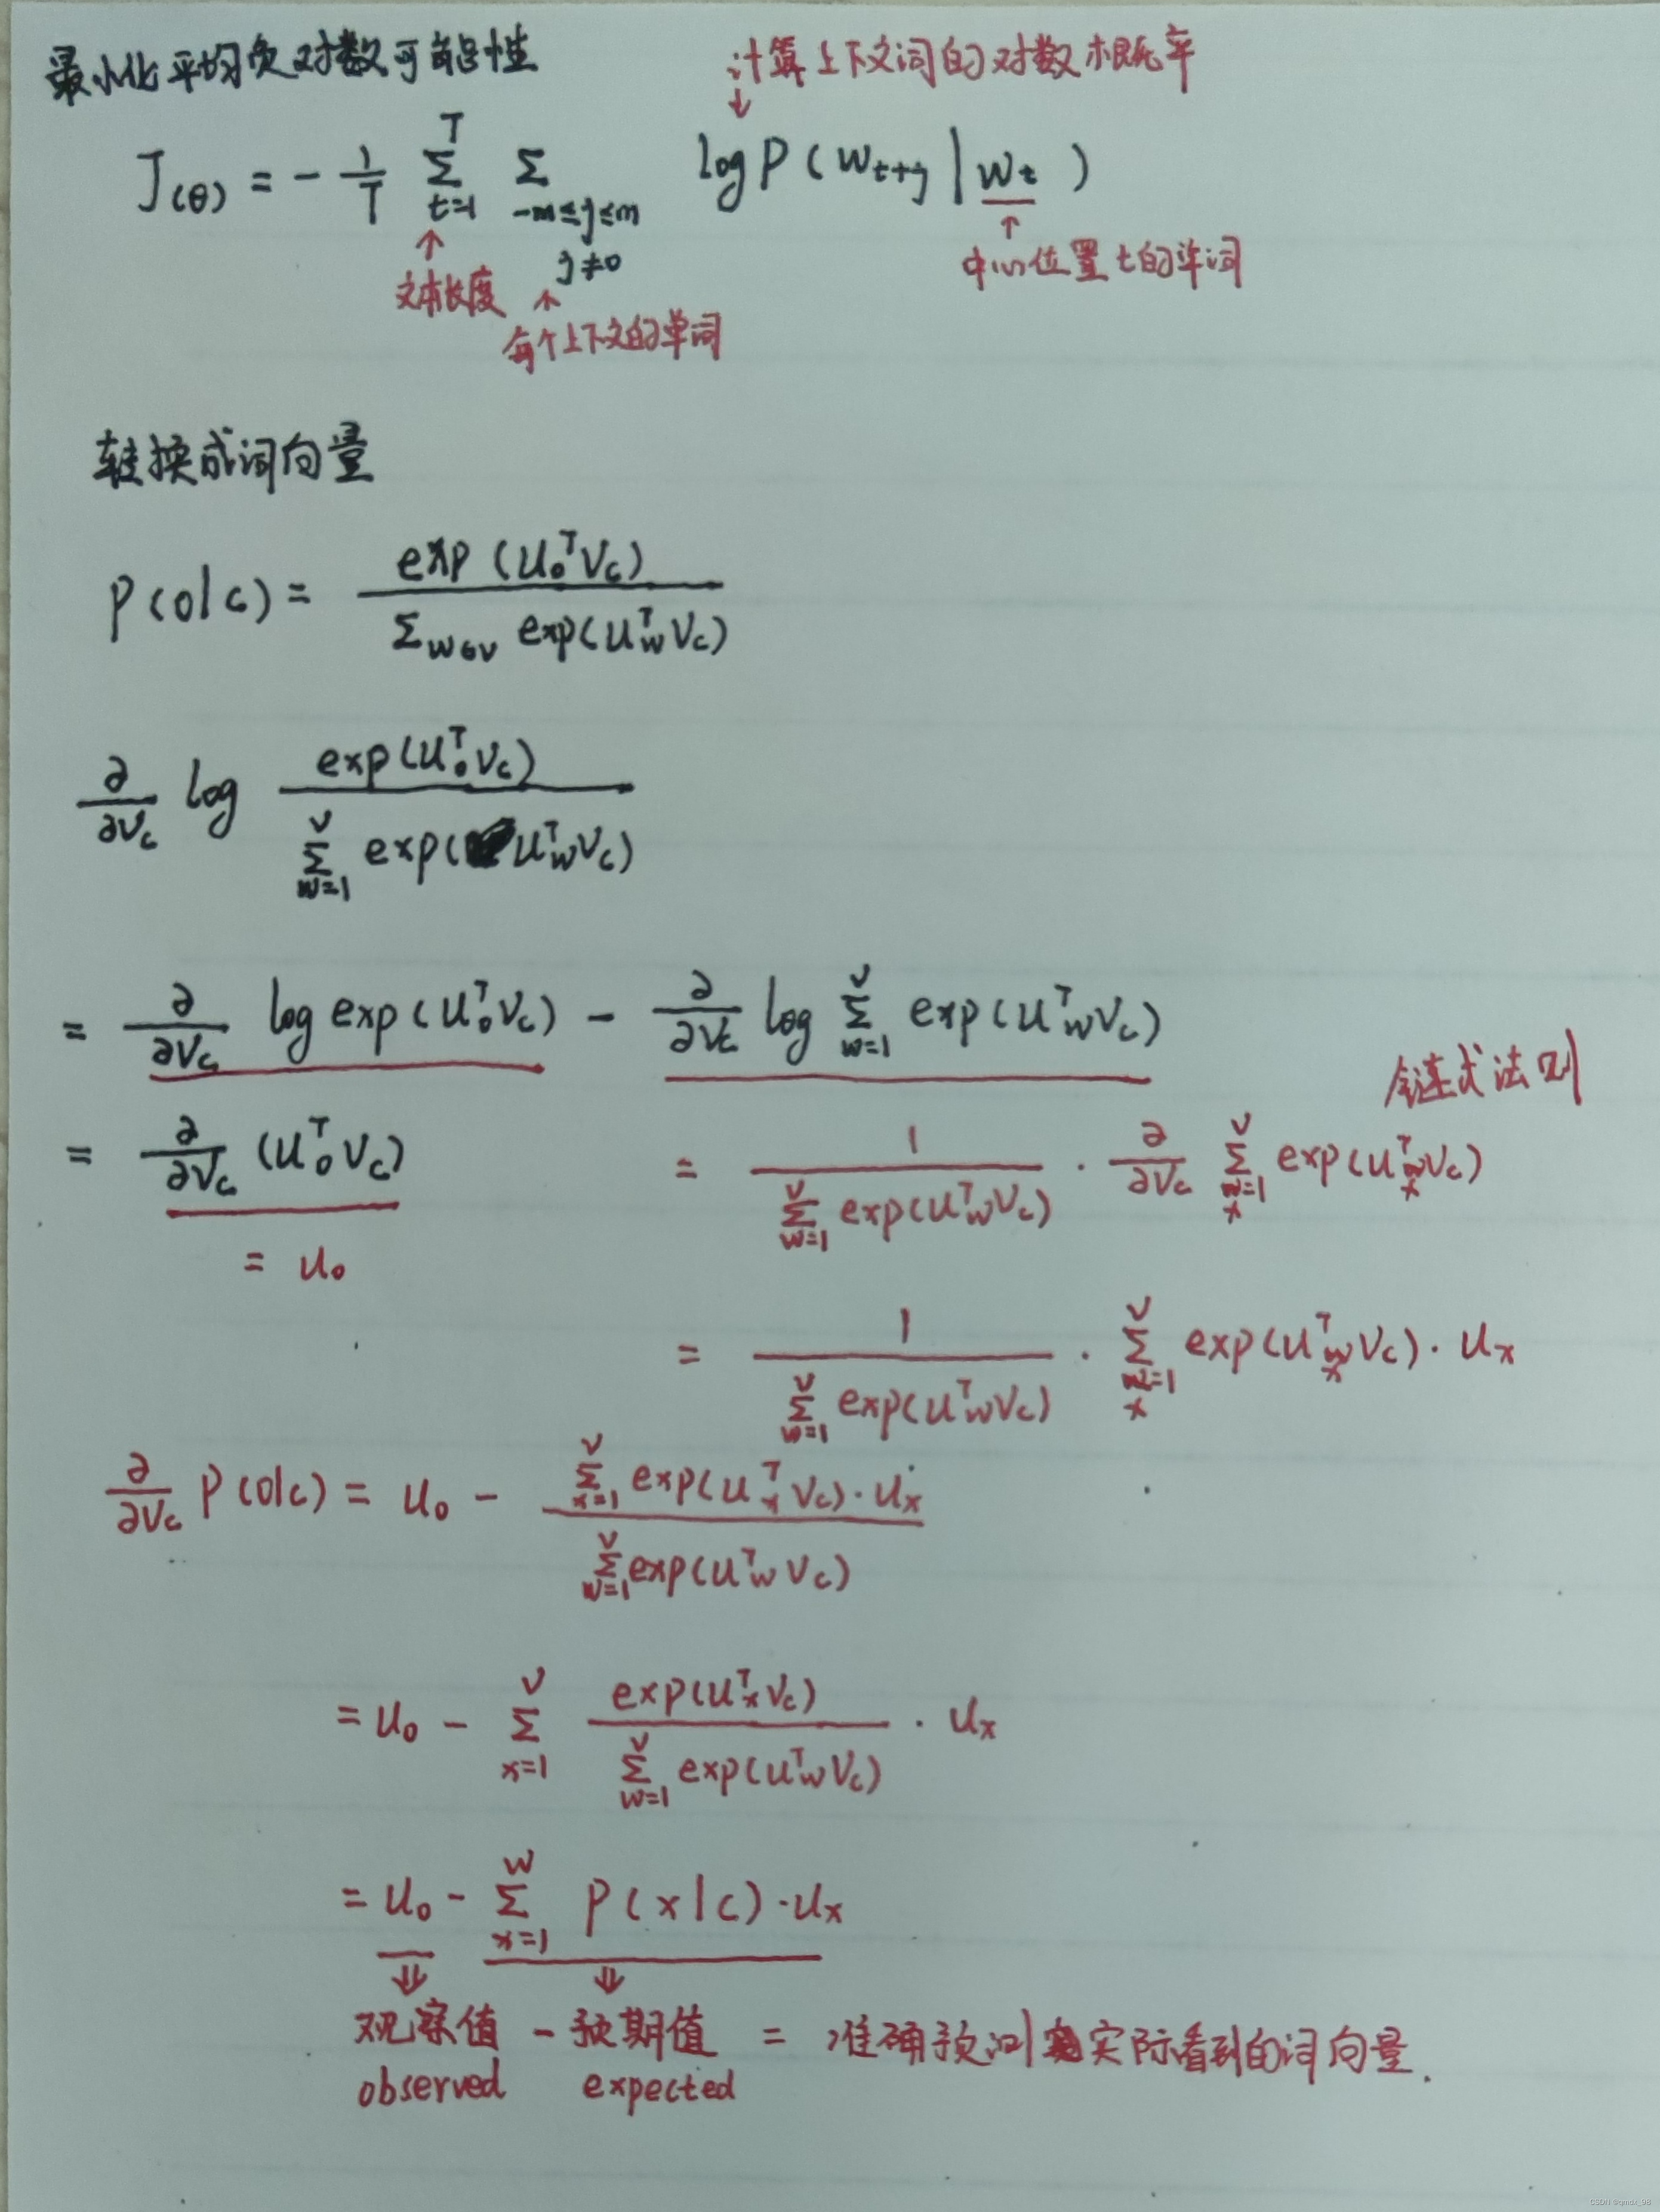 最小化平均负对数可能性
计算上下文词的对数概率
↓
J(θ) = - 1/T Σ_{t=1}^{T} Σ_{-m≤j≤m, j≠0} log P(w_{t+j} | w_t)
↑ ↑ ↑
文本长度 每个上下文的单词 中心位置t的单词
转换成词向量
P(o|c) = exp(u_o^T v_c) / Σ_{w∈V} exp(u_w^T v_c)
∂/∂v_c log exp(u_o^T v_c) / Σ_{w=1}^{V} exp(u_w^T v_c)
= ∂/∂v_c log exp(u_o^T v_c) - ∂/∂v_c log Σ_{w=1}^{V} exp(u_w^T v_c)
链式法则
= ∂/∂v_c (u_o^T v_c) = 1 / Σ_{w=1}^{V} exp(u_w^T v_c) · ∂/∂v_c Σ_{x=1}^{V} exp(u_x^T v_c)
= u_o
= 1 / Σ_{w=1}^{V} exp(u_w^T v_c) · Σ_{x=1}^{V} exp(u_x^T v_c) · u_x
∂/∂v_c P(o|c) = u_o - Σ_{x=1}^{V} exp(u_x^T v_c) · u_x / Σ_{w=1}^{V} exp(u_w^T v_c)
= u_o - Σ_{x=1}^{V} exp(u_x^T v_c) / Σ_{w=1}^{V} exp(u_w^T v_c) · u_x
= u_o - Σ_{x=1}^{W} P(x|c) · u_x
⇓ ⇓
观察值 - 预期值 = 准确预测实际看到的词向量.
observed expected